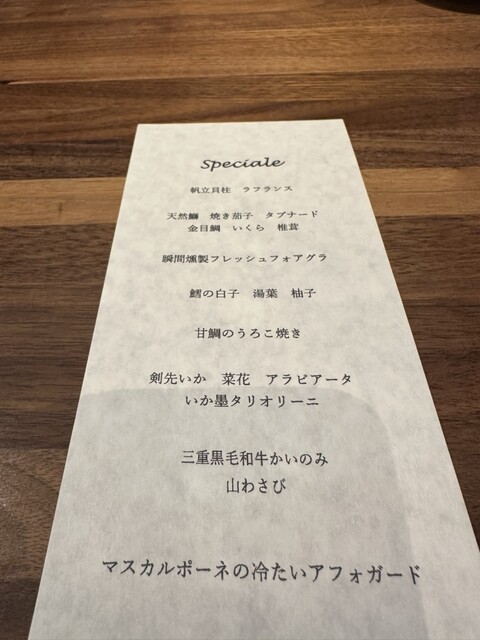 Speciale
帆立貝柱　ラフランス
天然鰤　焼き茄子　タプナード
金目鯛　いくら　椎茸
瞬間燻製フレッシュフォアグラ
鱈の白子　湯葉　柚子
甘鯛のうろこ焼き
剣先いか　菜花　アラビアータ
いか墨タリオリーニ
三重黒毛和牛かいのみ
山わさび
マスカルポーネの冷たいアフォガード